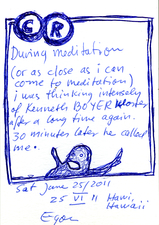 C R
During meditation
(or as close as i can
come to meditation)
i was thinking intensely
of Kenneth BOYER
after a long time again.
30 minutes later he called
me.
Sat June 25/2011
25 VI 11 Hawi,
Hawaii
Egon